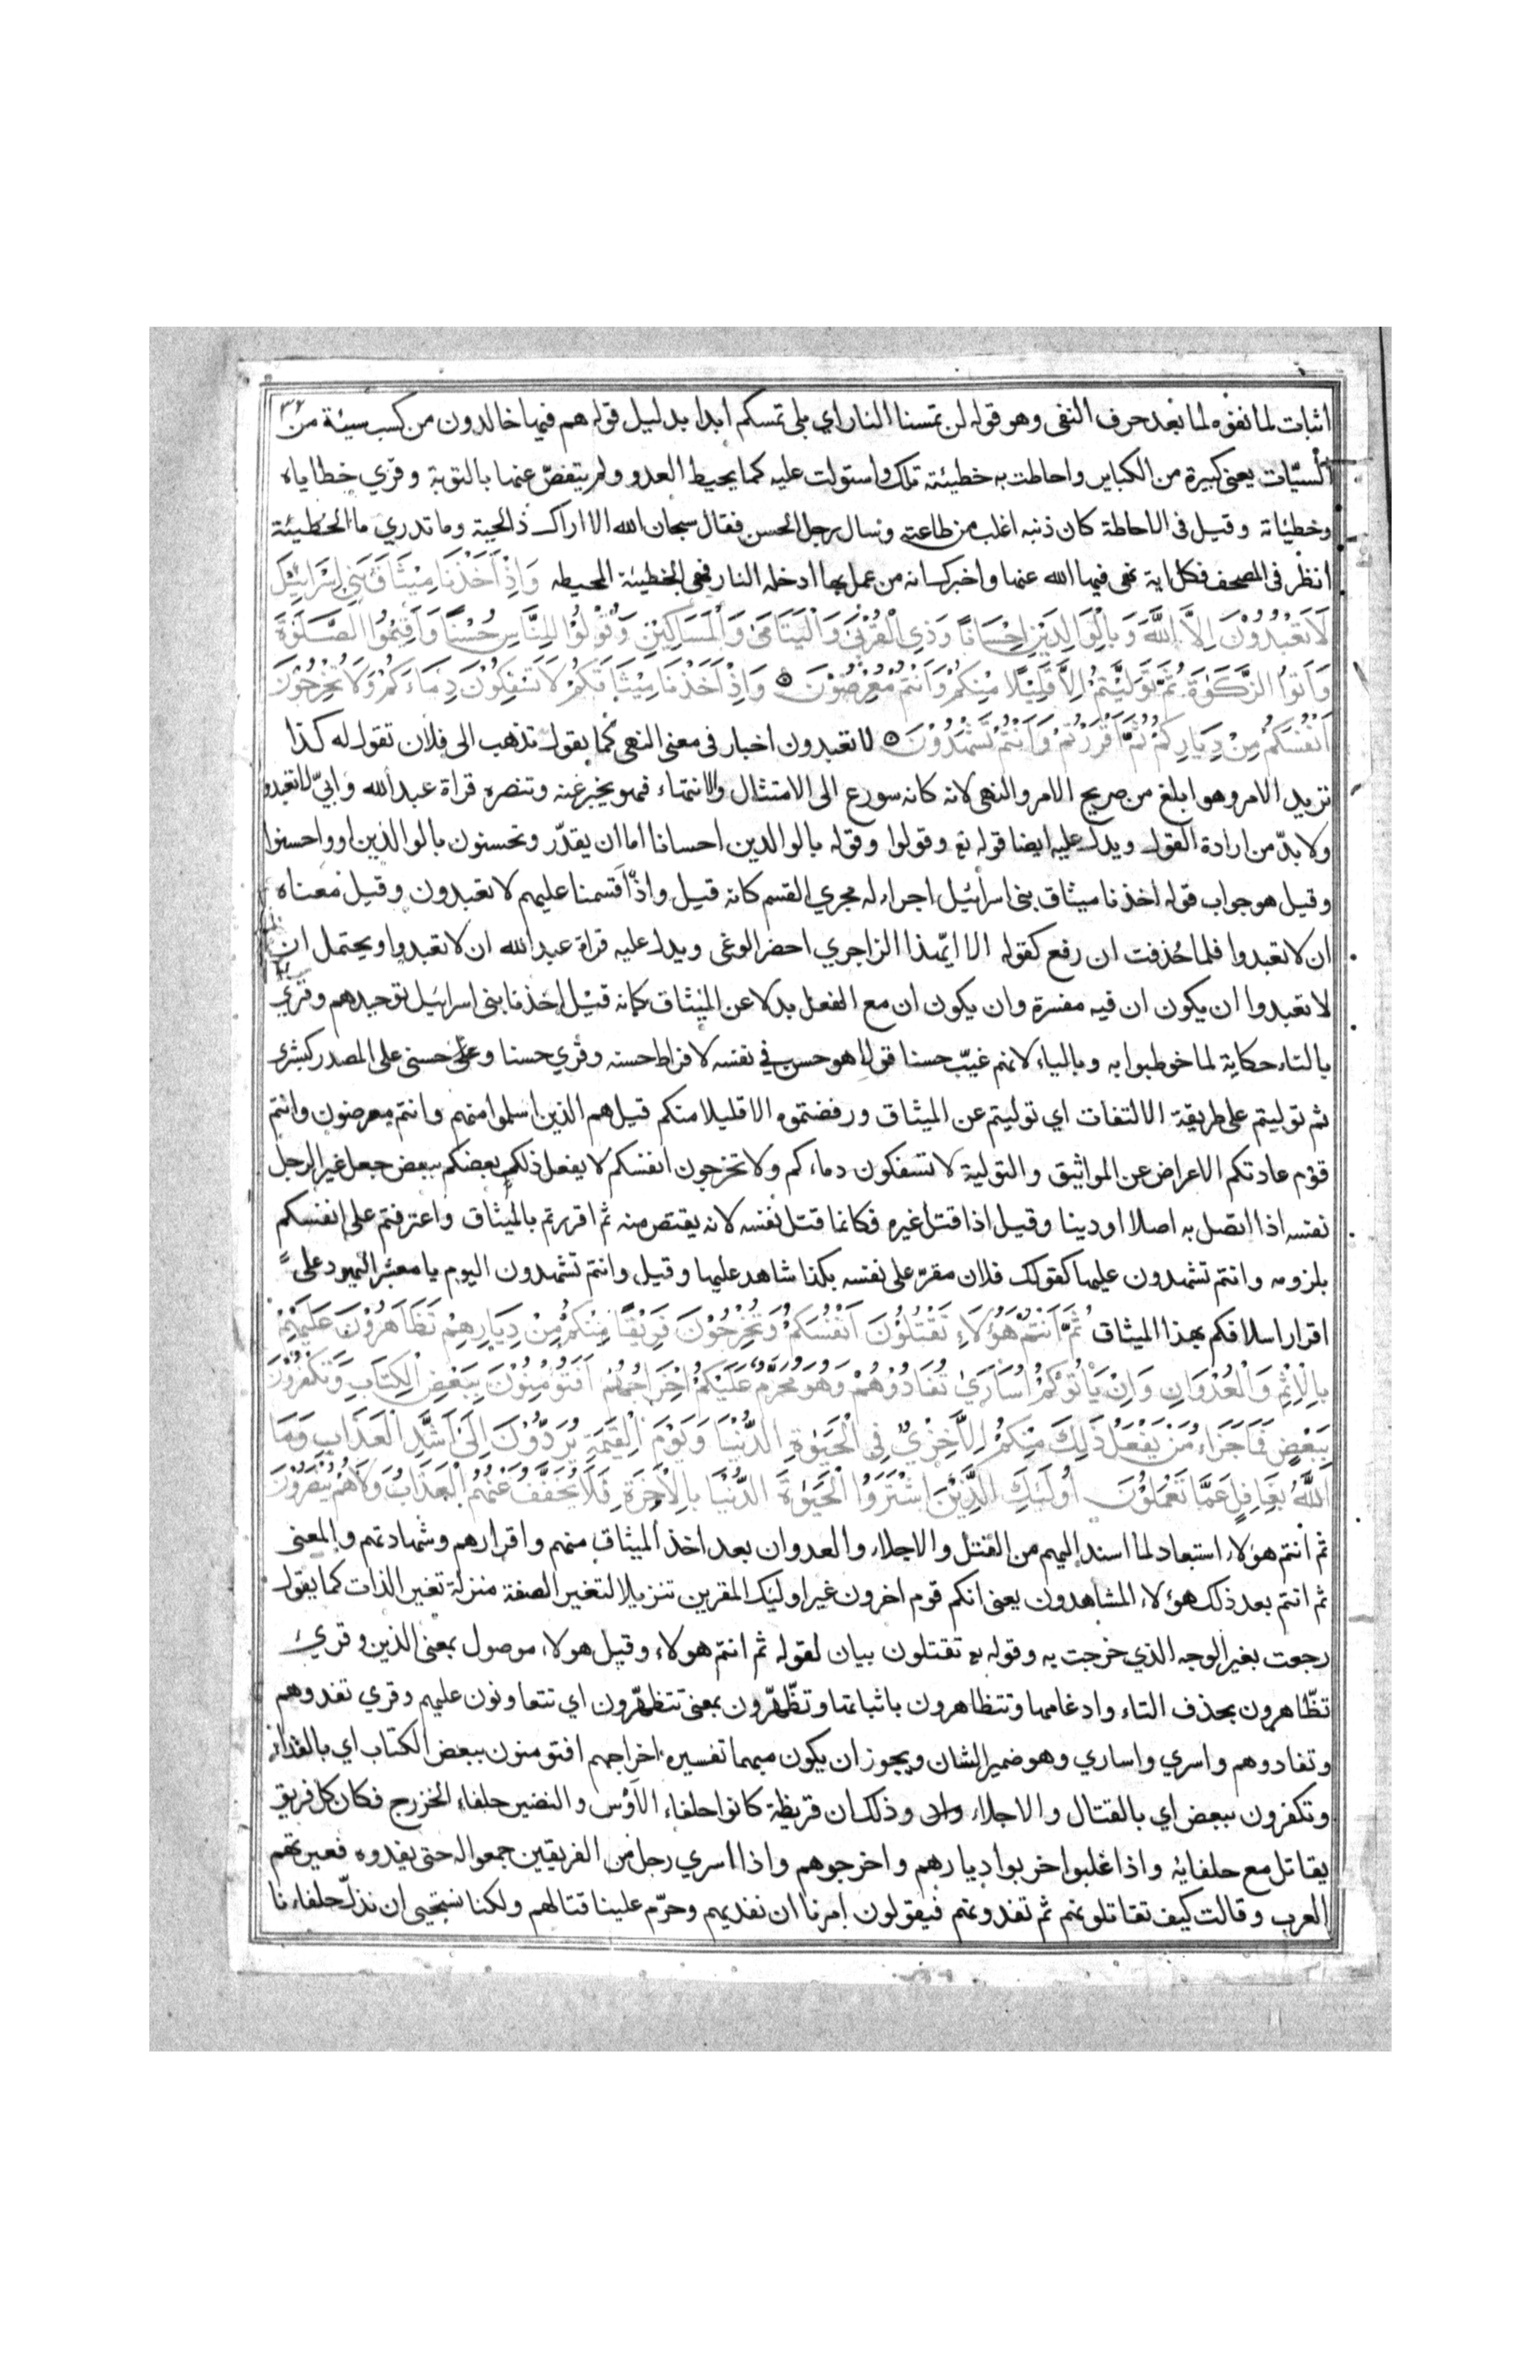 اثبات لما نفوه لما بعد حرف النفى وهو قوله لن تمسنا النار اي بلى تمسكم ابدا بدليل قوله هم فيها خالدون من كسب سيئة من
السيّات يعنى كبيرة من الكباير واحاطت به خطيئته تلك واستولت عليه كما يحيط العدو ولم يتفصّ عنها بالتوبة وقري خطاياه
وخطيئاته وقيل فى الاحاطة كان ذنبه اغلب من طاعته وسال رجل الحسن فقال سبحان الله الا اراك ذا لحية وما تدري ما الخطيئة
انظر فى المصحف فكل اية نهى فيها الله عنها واخبرك انه من عمل بها ادخله النار فهى الخطيئة المحيطه وَاِذْ اَخَذْنَا مِيْثَاقَ بَنِي اِسْرَائِيْلَ
لَا تَعْبُدُوْنَ اِلَّا اللّٰهَ وَبِالْوَالِدَيْنِ اِحْسَانًا وَذِي الْقُرْبٰى وَالْيَتَامٰى وَالْمَسَاكِيْنِ وَقُوْلُوْا لِلنَّاسِ حُسْنًا وَاَقِيْمُوا الصَّلٰوةَ
وَاٰتُوا الزَّكٰوةَ ثُمَّ تَوَلَّيْتُمْ اِلَّا قَلِيْلًا مِنْكُمْ وَاَنْتُمْ مُعْرِضُوْنَ ۞ وَاِذْ اَخَذْنَا مِيْثَاقَكُمْ لَا تَسْفِكُوْنَ دِمَاءَكُمْ وَلَا تُخْرِجُوْنَ
اَنْفُسَكُمْ مِنْ دِيَارِكُمْ ثُمَّ اَقْرَرْتُمْ وَاَنْتُمْ تَشْهَدُوْنَ ۞ لا تعبدون اخبار فى معنى النهى كما يقول تذهب الى فلان تقول له كذا
تريد الامر وهو ابلغ من صريح الامر والنهى لانه كانه سورع الى الامتثال والانتهاء فهو يخبر عنه وتنصره قراة عبد الله وابيّ لا تعبدوا
ولا بدّ من ارادة القول ويدل عليه ايضا قوله تع وقولوا وقوله بالوالدين احسانا اما ان يقدّر وتحسنون بالوالدين او واحسنوا
وقيل هو جواب قوله اخذنا ميثاق بنى اسرائيل اجراء له مجري القسم كانه قيل واذ اقسمنا عليهم لا تعبدون وقيل معناه
ان لا تعبدوا فلما حُذفت ان رفع كقوله الا ايّهذا الزاجري احضر الوغى ويدل عليه قراة عبد الله ان لا تعبدوا ويحتمل ان
لا تعبدوا ان يكون ان فيه مفسرة وان يكون ان مع الفعل بدلا عن الميثاق كانه قيل اخذنا بنى اسرائيل توحيدهم وقري
بالتاء حكاية لما خوطبوا به وبالياء لانهم غيّب حسنا قولا هو حسن في نفسه لافراط حسنه وقري حسنا وعلى حسنى على المصدر كبشرى
ثم توليتم على طريقة الالتفات اي توليتم عن الميثاق ورفضتموه الا قليلا منكم قيل هم الذين اسلموا منهم وانتم معرضون وانتم
قوم عادتكم الاعراض عن المواثيق والتولية لا تسفكون دماءكم ولا تخرجون انفسكم لا يفعل ذلك بعضكم ببعض جعل غير الرجل
نفسه اذا اتصل به اصلا او دينا وقيل اذا قتل غيره فكانما قتل نفسه لانه يقتص منه ثم اقررتم بالميثاق واعترفتم على انفسكم
بلزومه وانتم تشهدون عليها كقولك فلان مقرّ على نفسه بكذا شاهد عليها وقيل وانتم تشهدون اليوم يا معشر اليهود على
اقرار اسلافكم بهذا الميثاق ثُمَّ اَنْتُمْ هٰؤُلَاءِ تَقْتُلُوْنَ اَنْفُسَكُمْ وَتُخْرِجُوْنَ فَرِيْقًا مِنْكُمْ مِنْ دِيَارِهِمْ تَظَاهَرُوْنَ عَلَيْهِمْ
بِالْاِثْمِ وَالْعُدْوَانِ وَاِنْ يَأْتُوْكُمْ اُسَارٰى تُفَادُوْهُمْ وَهُوَ مُحَرَّمٌ عَلَيْكُمْ اِخْرَاجُهُمْ اَفَتُؤْمِنُوْنَ بِبَعْضِ الْكِتَابِ وَتَكْفُرُوْنَ
بِبَعْضٍ فَمَا جَزَاءُ مَنْ يَفْعَلُ ذٰلِكَ مِنْكُمْ اِلَّا خِزْيٌ فِي الْحَيٰوةِ الدُّنْيَا وَيَوْمَ الْقِيٰمَةِ يُرَدُّوْنَ اِلٰى اَشَدِّ الْعَذَابِ وَمَا
اللّٰهُ بِغَافِلٍ عَمَّا تَعْمَلُوْنَ اُولٰئِكَ الَّذِيْنَ اشْتَرَوُا الْحَيٰوةَ الدُّنْيَا بِالْاٰخِرَةِ فَلَا يُخَفَّفُ عَنْهُمُ الْعَذَابُ وَلَا هُمْ يُنْصَرُوْنَ
ثم انتم هؤلاء استبعاد لما اسند اليهم من القتل والاجلاء والعدوان بعد اخذ الميثاق منهم واقرارهم وشهادتهم والمعنى
ثم انتم بعد ذلك هؤلاء المشاهدون يعنى انكم قوم اخرون غير اوليك المقرين تنزيلا لتغير الصفة منزلة تغير الذات كما يقول
رجعت بغير الوجه الذي خرجت به وقوله تع تقتلون بيان لقوله ثم انتم هولاء وقيل هولاء موصول بمعنى الذين وقرئ
تظّاهرون بحذف التاء وادغامها وتتظاهرون باثباتها وتظّهّرون بمعنى تتظهّرون اي تتعاونون عليهم وقري تفدوهم
وتفادوهم واسري واساري وهو ضمير الشان ويجوز ان يكون مبهما تفسيره اخراجهم افتومنون ببعض الكتاب اي بالفداء
وتكفرون ببعض اي بالقتال والاجلاء وذلك ان قريظة كانوا حلفاء الاَوْس والنضير حلفاء الخزرج فكان كل فريق
يقاتل مع حلفايه واذا غلبوا خربوا ديارهم واخرجوهم واذا اسري رجل من الفريقين جمعوا له حتى يفدوه فعيرتهم
العرب وقالت كيف تقاتلونهم ثم تفدونهم فيقولون امرنا ان نفديهم وحرّم علينا قتالهم ولكنا نستحيى ان نذلّ حلفاءنا